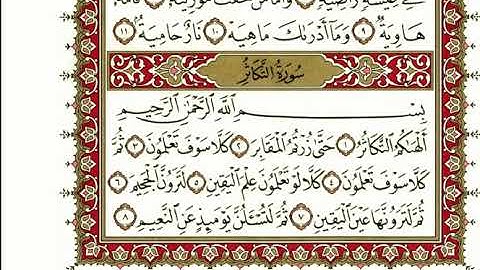 فِي عِيشَةٍ رَّاضِيَةٍ ۝٧ وَأَمَّا مَنْ خَفَّتْ مَوَازِينُهُ ۝٨ فَأُمُّهُ
هَاوِيَةٌ ۝٩ وَمَا أَدْرَىٰكَ مَا هِيَهْ ۝١٠ نَارٌ حَامِيَةٌ ۝١١
سُورَةُ التَّكَاثُرِ
بِسْمِ اللَّهِ الرَّحْمَٰنِ الرَّحِيمِ
أَلْهَىٰكُمُ التَّكَاثُرُ ۝١ حَتَّىٰ زُرْتُمُ الْمَقَابِرَ ۝٢ كَلَّا سَوْفَ تَعْلَمُونَ ۝٣ ثُمَّ
كَلَّا سَوْفَ تَعْلَمُونَ ۝٤ كَلَّا لَوْ تَعْلَمُونَ عِلْمَ الْيَقِينِ ۝٥ لَتَرَوُنَّ الْجَحِيمَ ۝٦
ثُمَّ لَتَرَوُنَّهَا عَيْنَ الْيَقِينِ ۝٧ ثُمَّ لَتُسْـَٔلُنَّ يَوْمَئِذٍ عَنِ النَّعِيمِ ۝٨